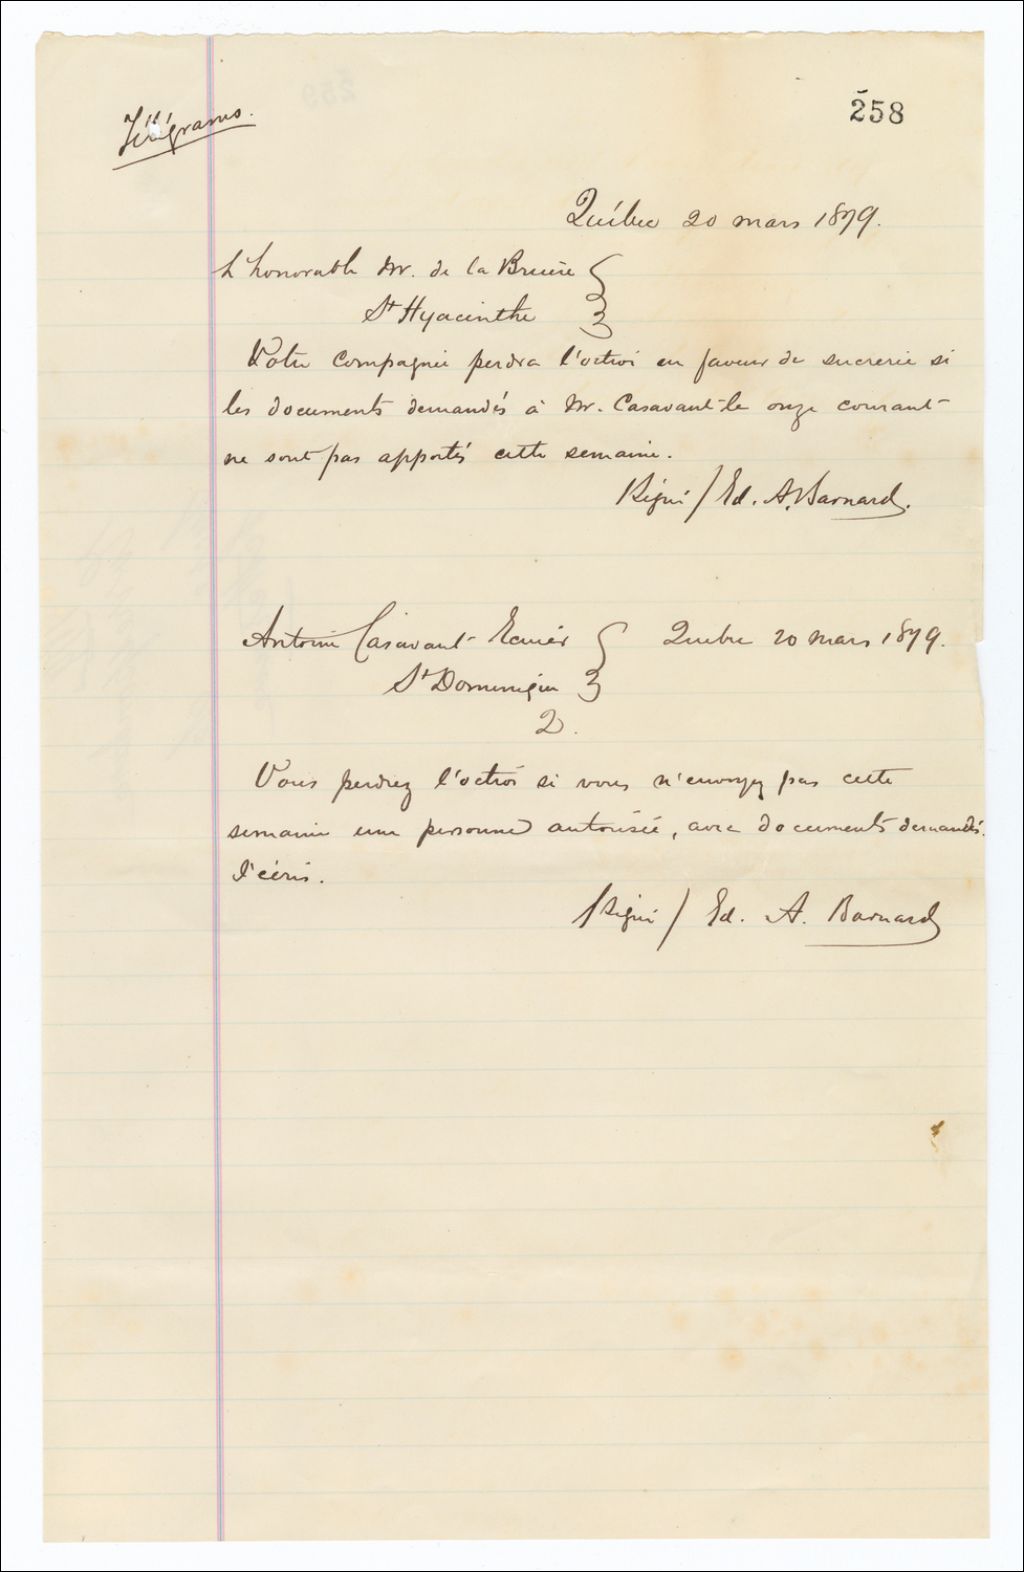 258
Télégrams.
Québec 20 mars 1879.
L'honorable Mr. de la Bruère
St Hyacinthe
Votre compagnie perdra l'octroi en faveur de sucrerie si
les documents demandés à Mr. Casavant le onze courant
ne sont pas apportés cette semaine.
Signé / Ed. A. Barnard.
Antoine Casavant Ecuier Québec 20 mars 1879.
St Dominique
2.
Vous perdrez l'octroi si vous n'envoyez pas cette
semaine une personne autorisée, avec documents demandés.
J'écris.
Signé / Ed. A. Barnard